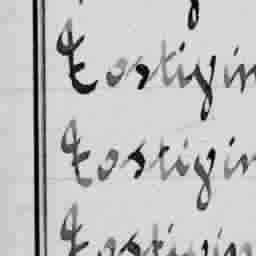 Costigin
Costigin
Costigin